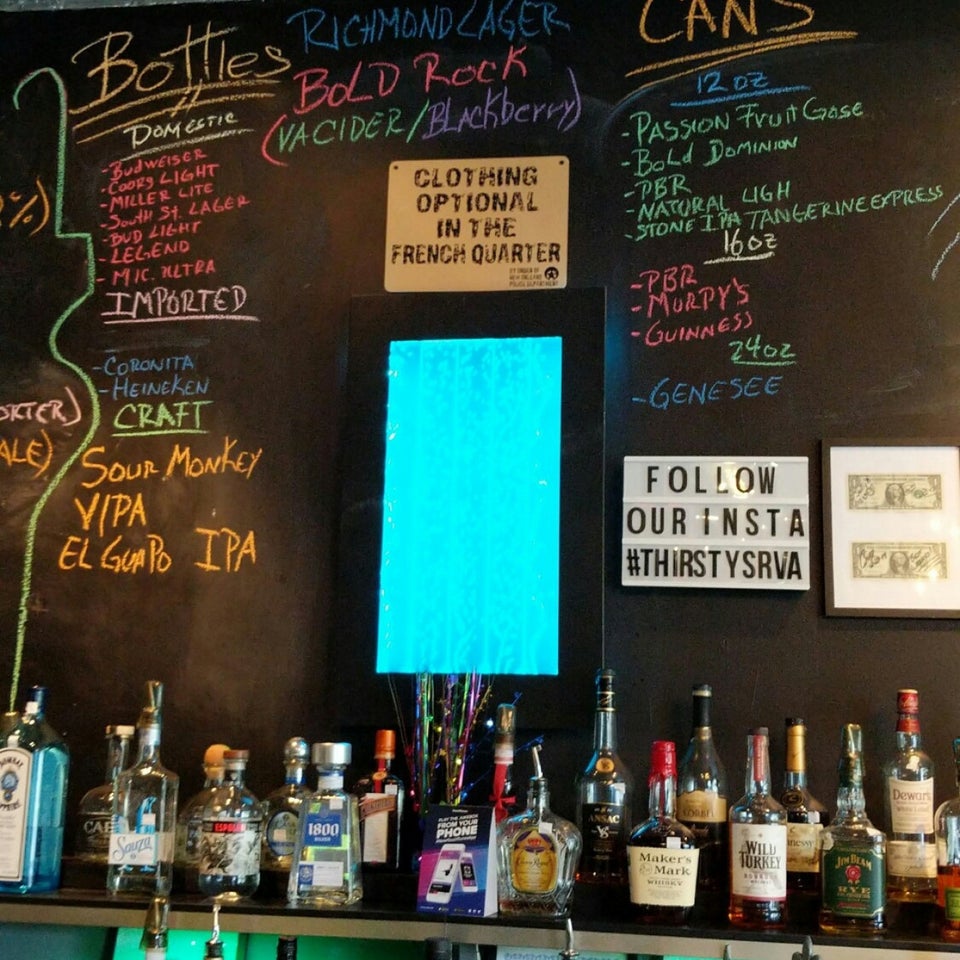 Bottles
DOMESTIC
- BUDWEISER
- COORS LIGHT
- MILLER LITE
- SOUTH ST. LAGER
- BUD LIGHT
- LEGEND
- MIC. ULTRA
IMPORTED
- CORONITA
- HEINEKEN
CRAFT
SOUR MONKEY
V/PA
EL GUAPO IPA
%)
ALE)
RICHMOND LAGER
BOLD ROCK
(VA CIDER/BLACKBERRY)
CLOTHING
OPTIONAL
IN THE
FRENCH QUARTER
BY ORDER OF
NEW ORLEANS
POLICE DEPARTMENT
CANS
12 OZ
- PASSION FRUIT GOSE
- BOLD DOMINION
- PBR
- NATURAL LIGH
- STONE IPA TANGERINE EXPRESS
16 OZ
- PBR
- MURPY'S
- GUINNESS
24 OZ
- GENESEE
FOLLOW
OUR INSTA
#THIRSTYSRVA
BOMBAY
Sauza
ESPOLON
1800
SILVER
PLAY THE JUKEBOX
FROM YOUR
PHONE
Crown Royal
Maker's
Mark
WHISKY
WILD
TURKEY
BOURBON
JIM BEAM
RYE
Dewar's